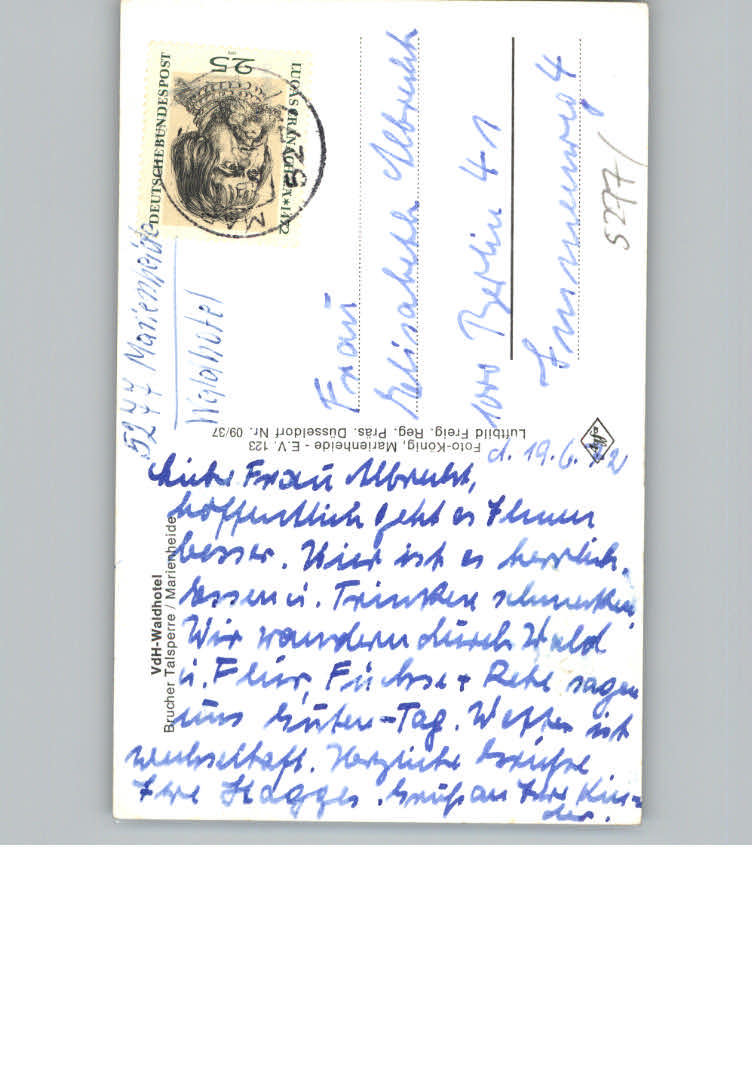 DEUTSCHE BUNDESPOST
25
LUCAS CRANACH D.Ä. * 1472
5277
5277 Marienheide
Waldhotel
Frau
Elisabeth Albrecht
1000 Berlin 41
Immenweg 4
5277/
Luftbild Freig. Reg. Präs. Düsseldorf Nr. 09/37
Foto-König, Marienheide - E.V. 123
Agfa
VdH-Waldhotel
Brucher Talsperre / Marienheide
d. 19.6.72
Liebe Frau Albrecht,
hoffentlich geht es Ihnen
besser. Hier ist es herrlich.
Essen u. Trinken schmecken
Wir wandern durch Wald
u. Flur, Füchse + Rehe sagen
uns Guten-Tag. Wetter ist
wechselhaft. Herzliche Grüße
Ihre Hagges. Gruß an Ihre Kin-
der.